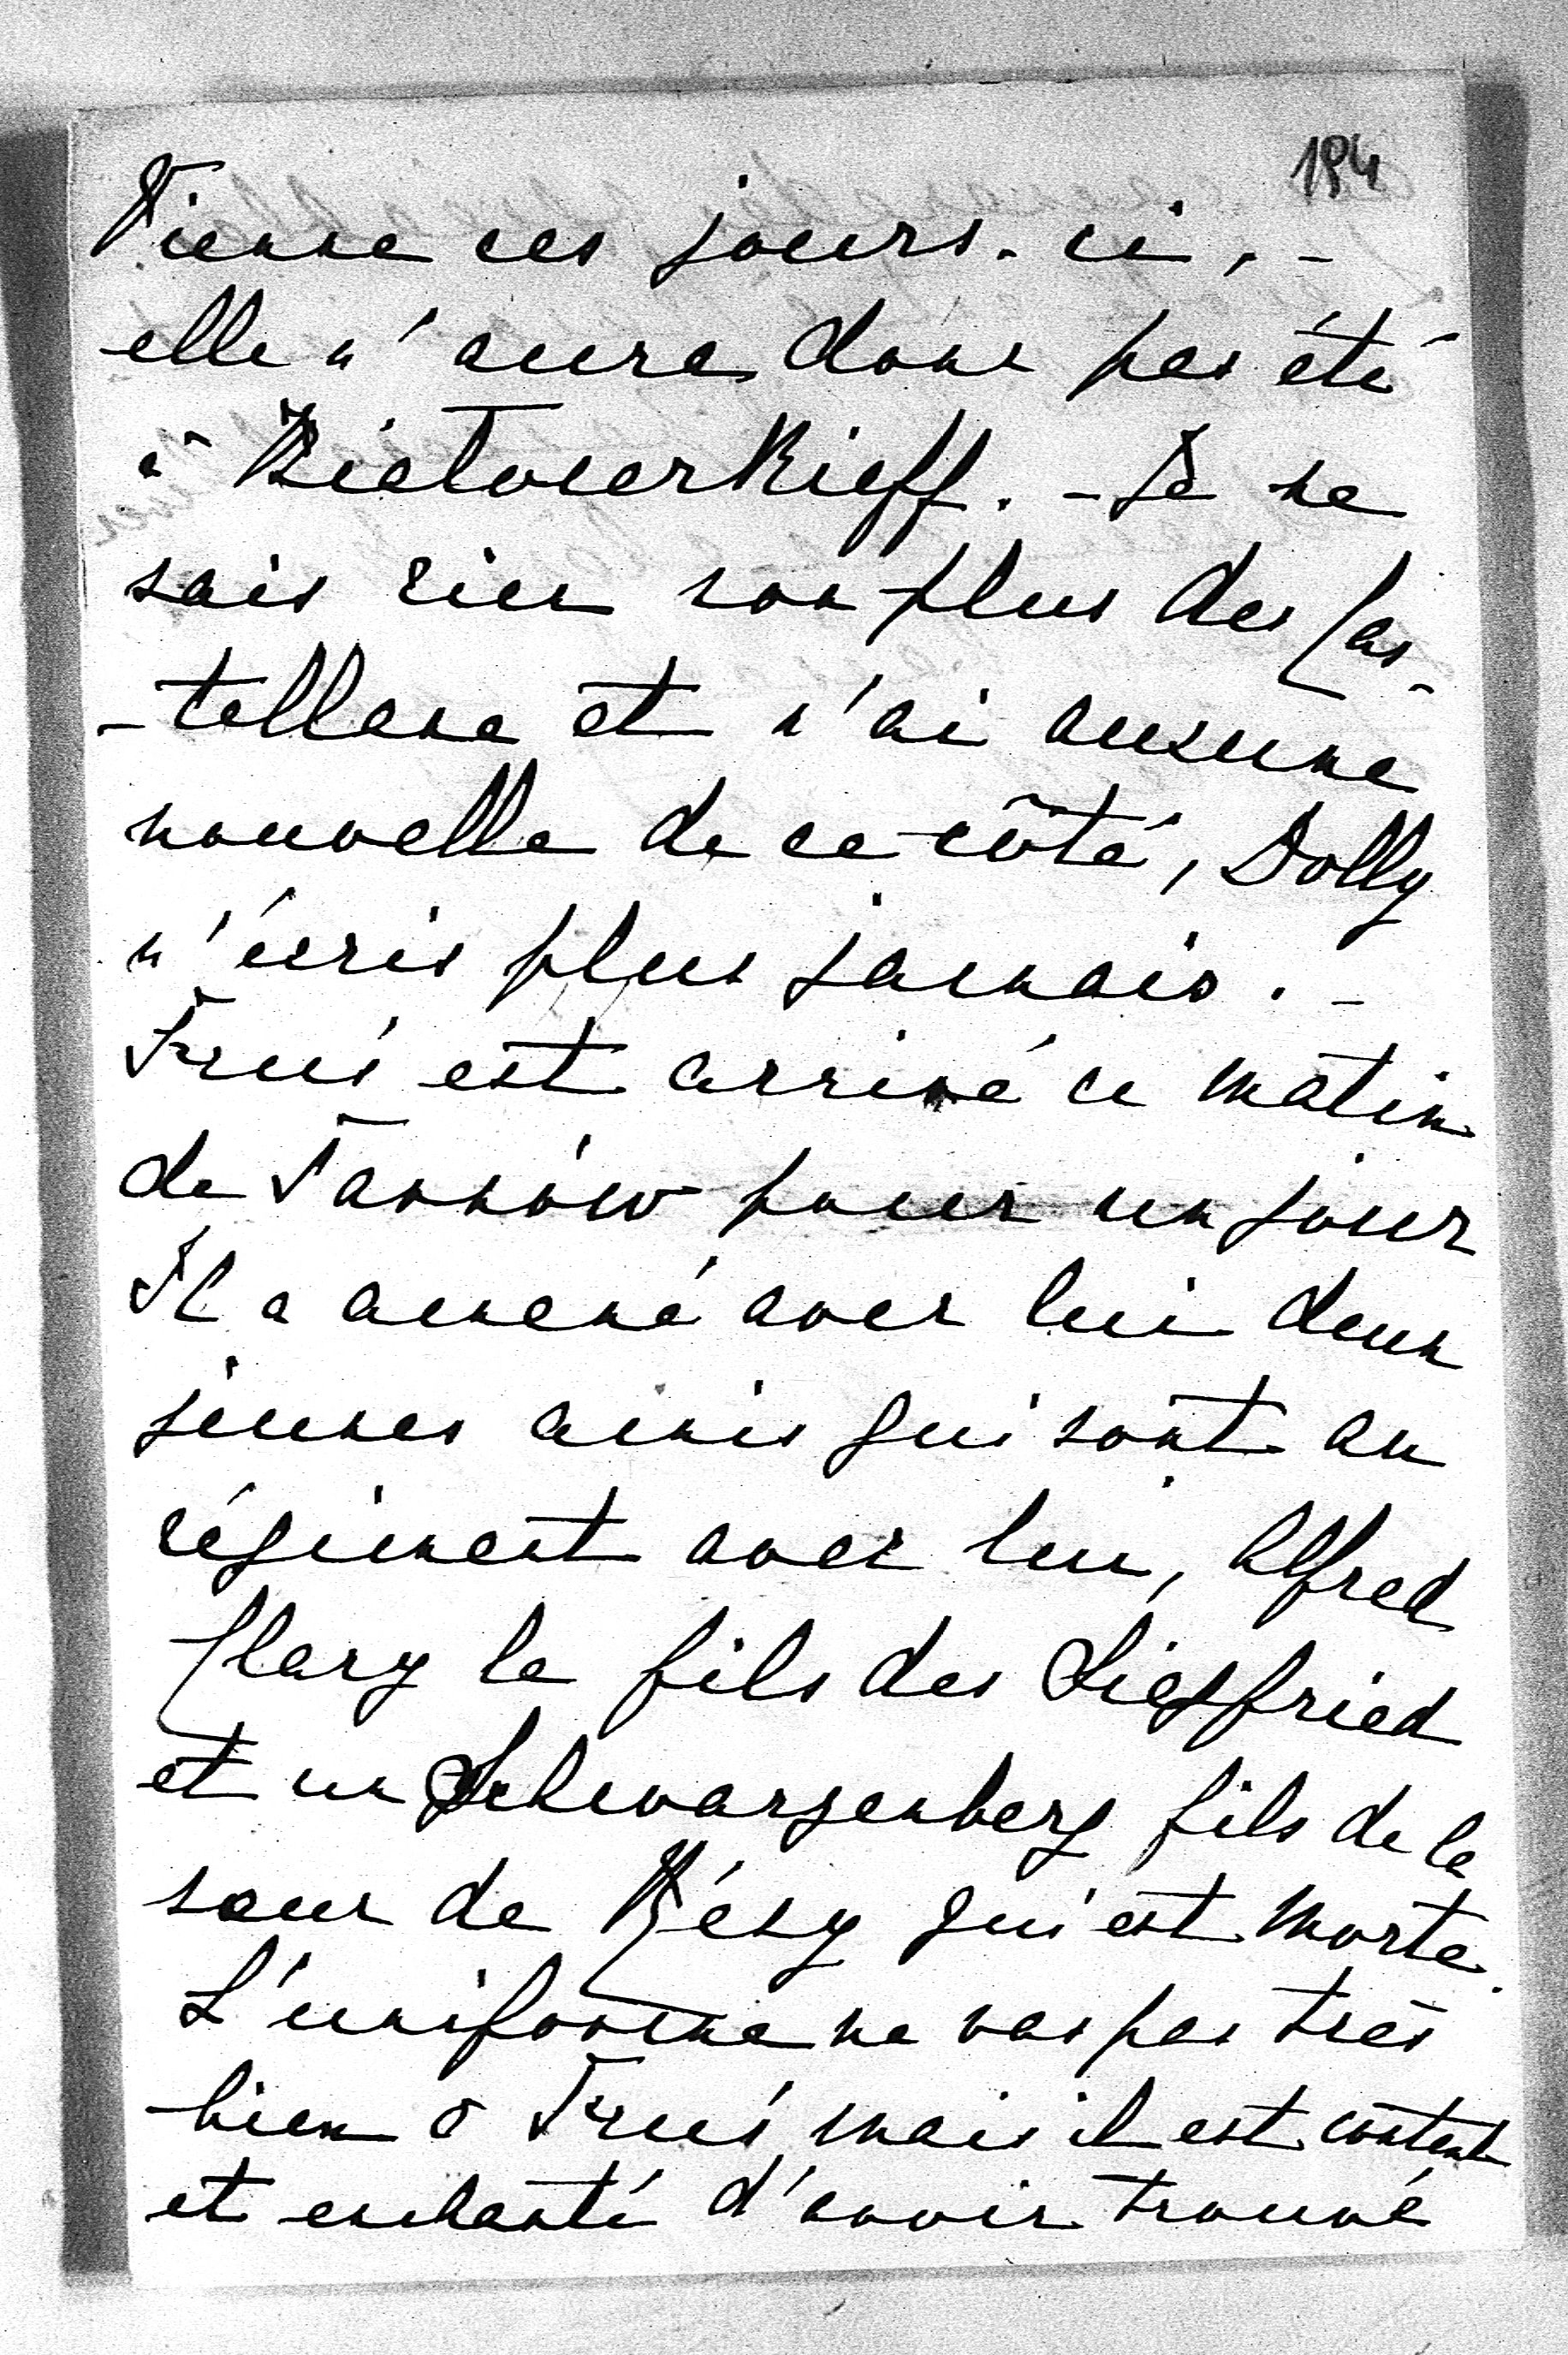 184
Vienne ces jours-ci, -
elle n'aura donc pas été
à Bialocerkieff. - Je ne
sais rien non plus des Cas-
-tellane et n'ai aucune
nouvelle de ce côté, Dolly
n'écris plus jamais. -
est arrivé ce matin
de Tarnów pour un jour
Il a amené avec lui deux
jeunes amis qui sont au
régiment avec lui, Alfred
Clary le fils des Siegfried
et un Schwarzenberg fils de la
soeur de qui est morte.
L'uniforme ne vas pas très
bien à mais il est content
et enchanté d'avoir trouvé